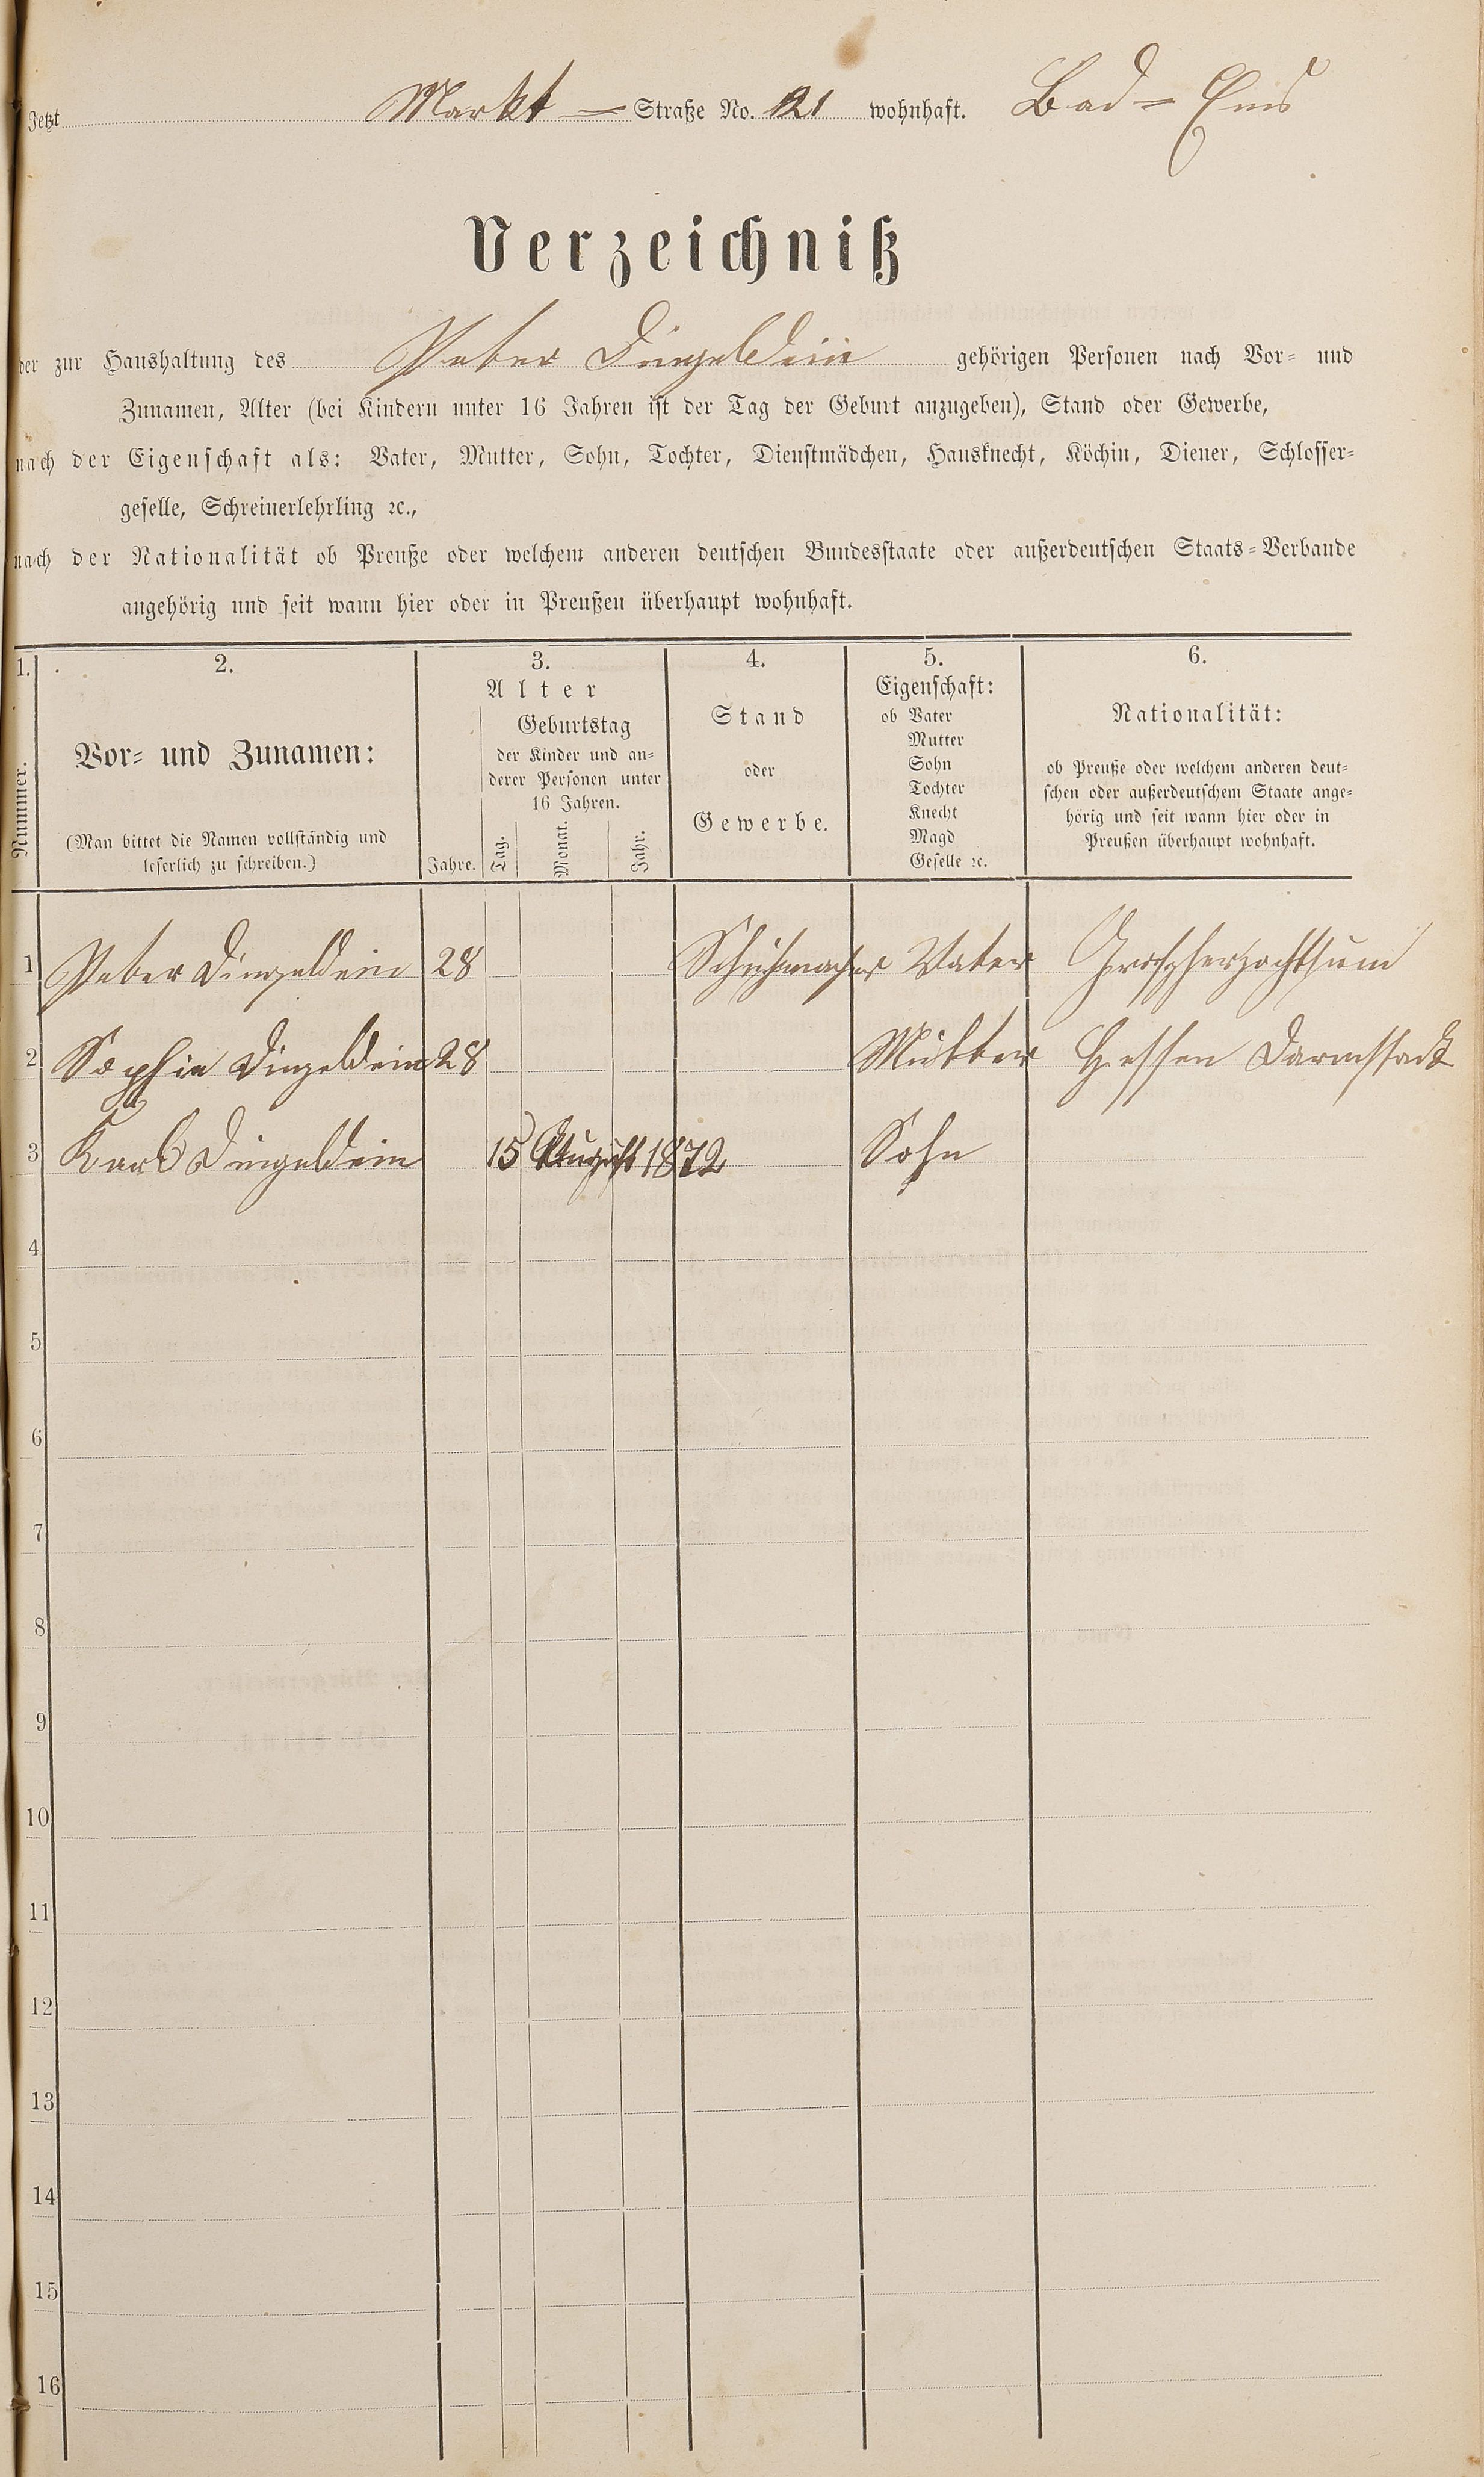 Jetzt Markt – Straße No. 21 wohnhaft. Bad = Ems
Verzeichniß
der zur Haushaltung des Peter Dingeldein gehörigen Personen nach Vor- und
Zunamen, Alter (bei Kindern unter 16 Jahren ist der Tag der Geburt anzugeben), Stand oder Gewerbe,
nach der Eigenschaft als: Vater, Mutter, Sohn, Tochter, Dienstmädchen, Hausknecht, Köchin, Diener, Schlosser-
geselle, Schreinerlehrling ꝛc.,
nach der Nationalität ob Preuße oder welchem anderen deutschen Bundesstaate oder außerdeutschen Staats-Verbande
angehörig und seit wann hier oder in Preußen überhaupt wohnhaft.
1. 2. 3. 4. 5. 6.
Nummer.
Vor- und Zunamen:
(Man bittet die Namen vollständig und
leserlich zu schreiben.)
Alter
Jahre.
Geburtstag
der Kinder und an-
derer Personen unter
16 Jahren.
Tag. Monat. Jahr.
Stand
oder
Gewerbe.
Eigenschaft:
ob Vater
Mutter
Sohn
Tochter
Knecht
Magd
Geselle ꝛc.
Nationalität:
ob Preuße oder welchem anderen deut-
schen oder außerdeutschem Staate ange-
hörig und seit wann hier oder in
Preußen überhaupt wohnhaft.
1 Peter Dingeldein 28 Schuhmacher Vater Grosherzochthum
2 Sophie Dingeldein 28 Mutter Hessen Darmstadt
3 Karl Dingeldein 15 August 1872 Sohn
4
5
6
7
8
9
10
11
12
13
14
15
16